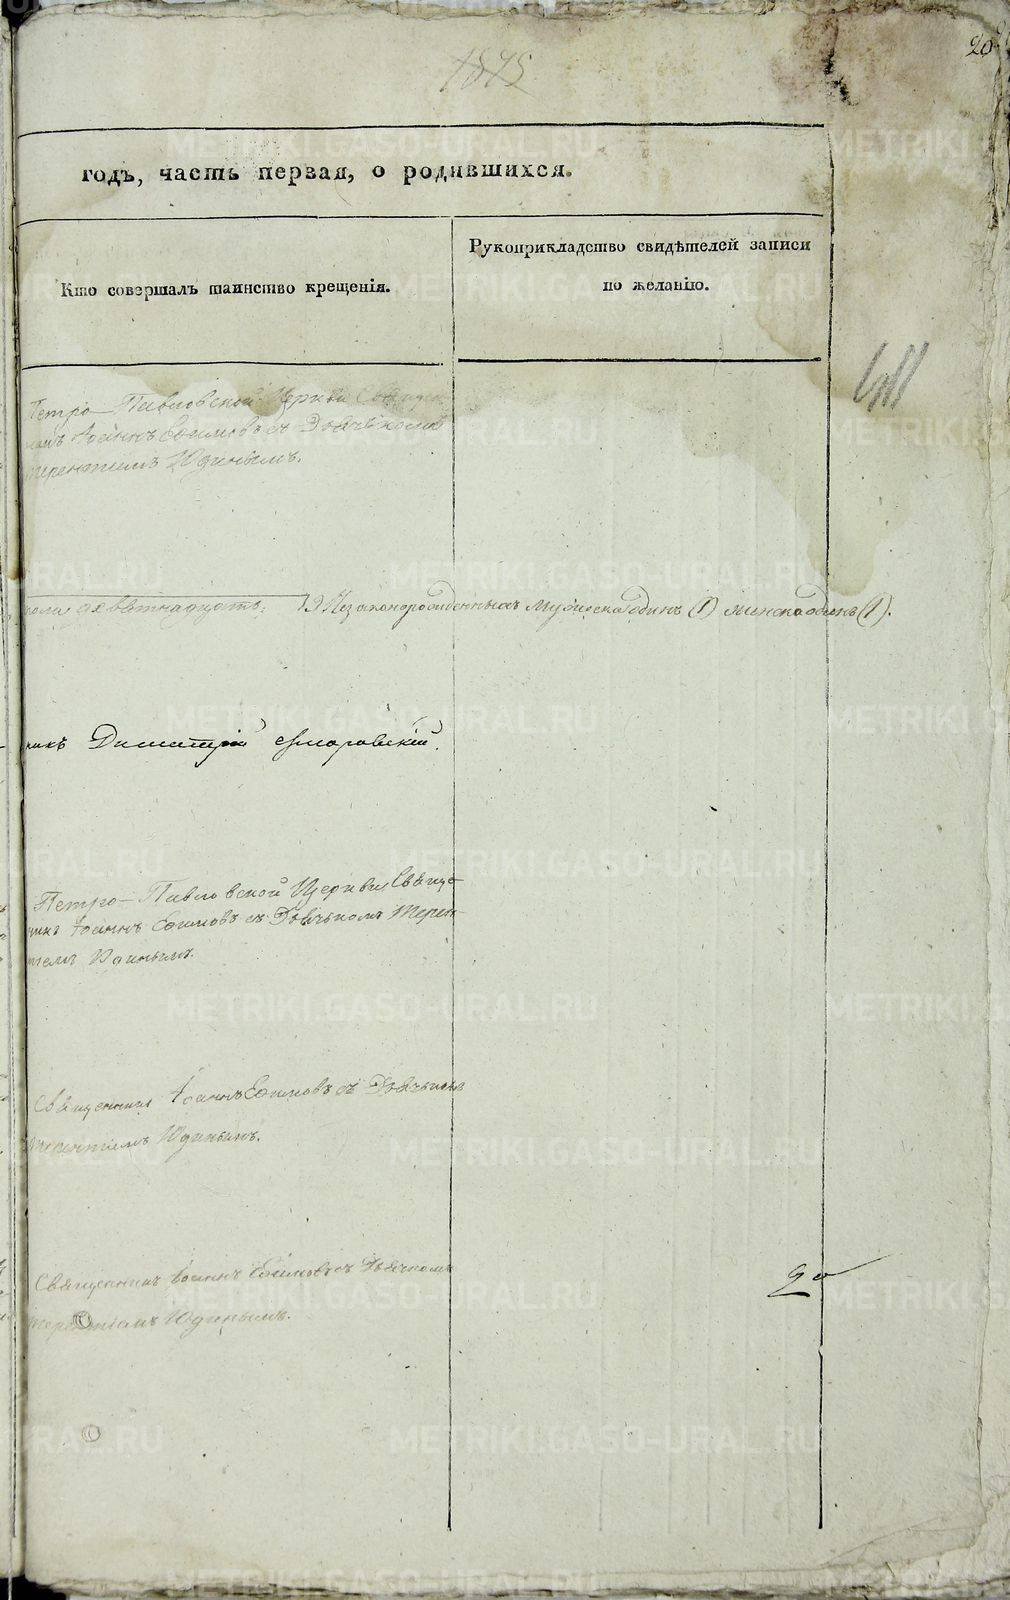 20
1845
годъ, часть первая, о родившихся.
Кто совершалъ таинство крещенія.
Рукоприкладство свидѣтелей записи
по желанію.
Петро-Павловской Церкви Священ
Іоаннъ Ефимовъ съ Дьячкомъ
Терентіемъ Юдинымъ.
пола девятнадцать: 19 Незаконорожденныхъ мужеска одинъ (1) женска одинъ (1).
никъ Димитрій
Петро-Павловской Церкви Священ-
никъ Іоаннъ Ефимовъ съ Дьячкомъ Терен-
тіемъ Юдинымъ.
Священникъ Іоаннъ Ефимовъ съ Дьячкомъ
Терентіемъ Юдинымъ.
Священникъ Іоаннъ Ефимовъ съ Дьячкомъ
Терентіемъ Юдинымъ.
20
METRIKI.GASO-URAL.RU